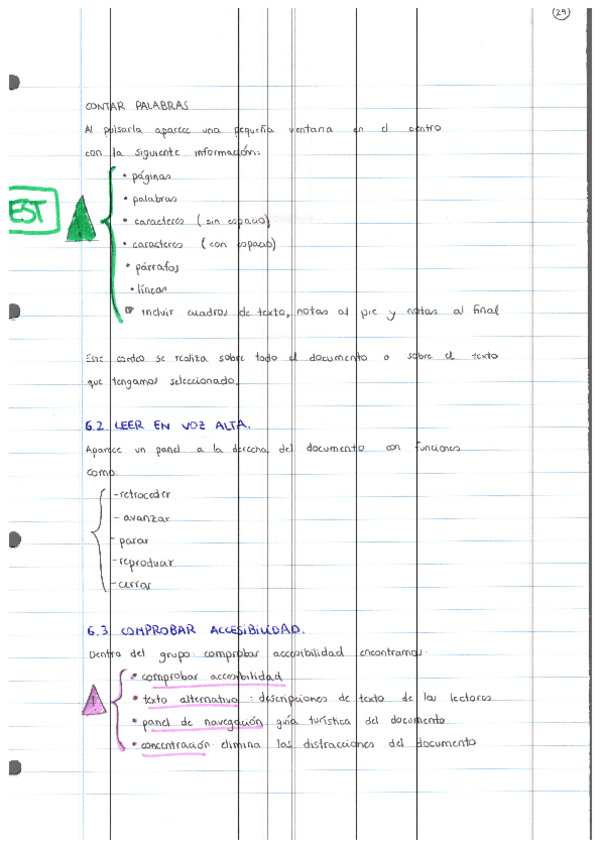 29
CONTAR PALABRAS
Al pulsarla aparece una pequeña ventana en el centro
con la siguiente información:
• páginas
• palabras
EST
• caracteres (sin espacio)
• caracteres (con espacio)
• párrafos
• líneas
incluir cuadros de texto, notas al pie y notas al final
Este conteo se realiza sobre todo el documento o sobre el texto
que tengamos seleccionado.
6.2 LEER EN VOZ ALTA.
Aparece un panel a la derecha del documento con funciones
como:
-retroceder
- avanzar
- parar
-reproducir
-cerrar
6.3 COMPROBAR ACCESIBILIDAD.
Dentro del grupo comprobar accesibilidad encontramos:
! • comprobar accesibilidad
• texto alternativo: descripciones de texto de los lectores
• panel de navegación guía turística del documento
• concentración elimina las distracciones del documento